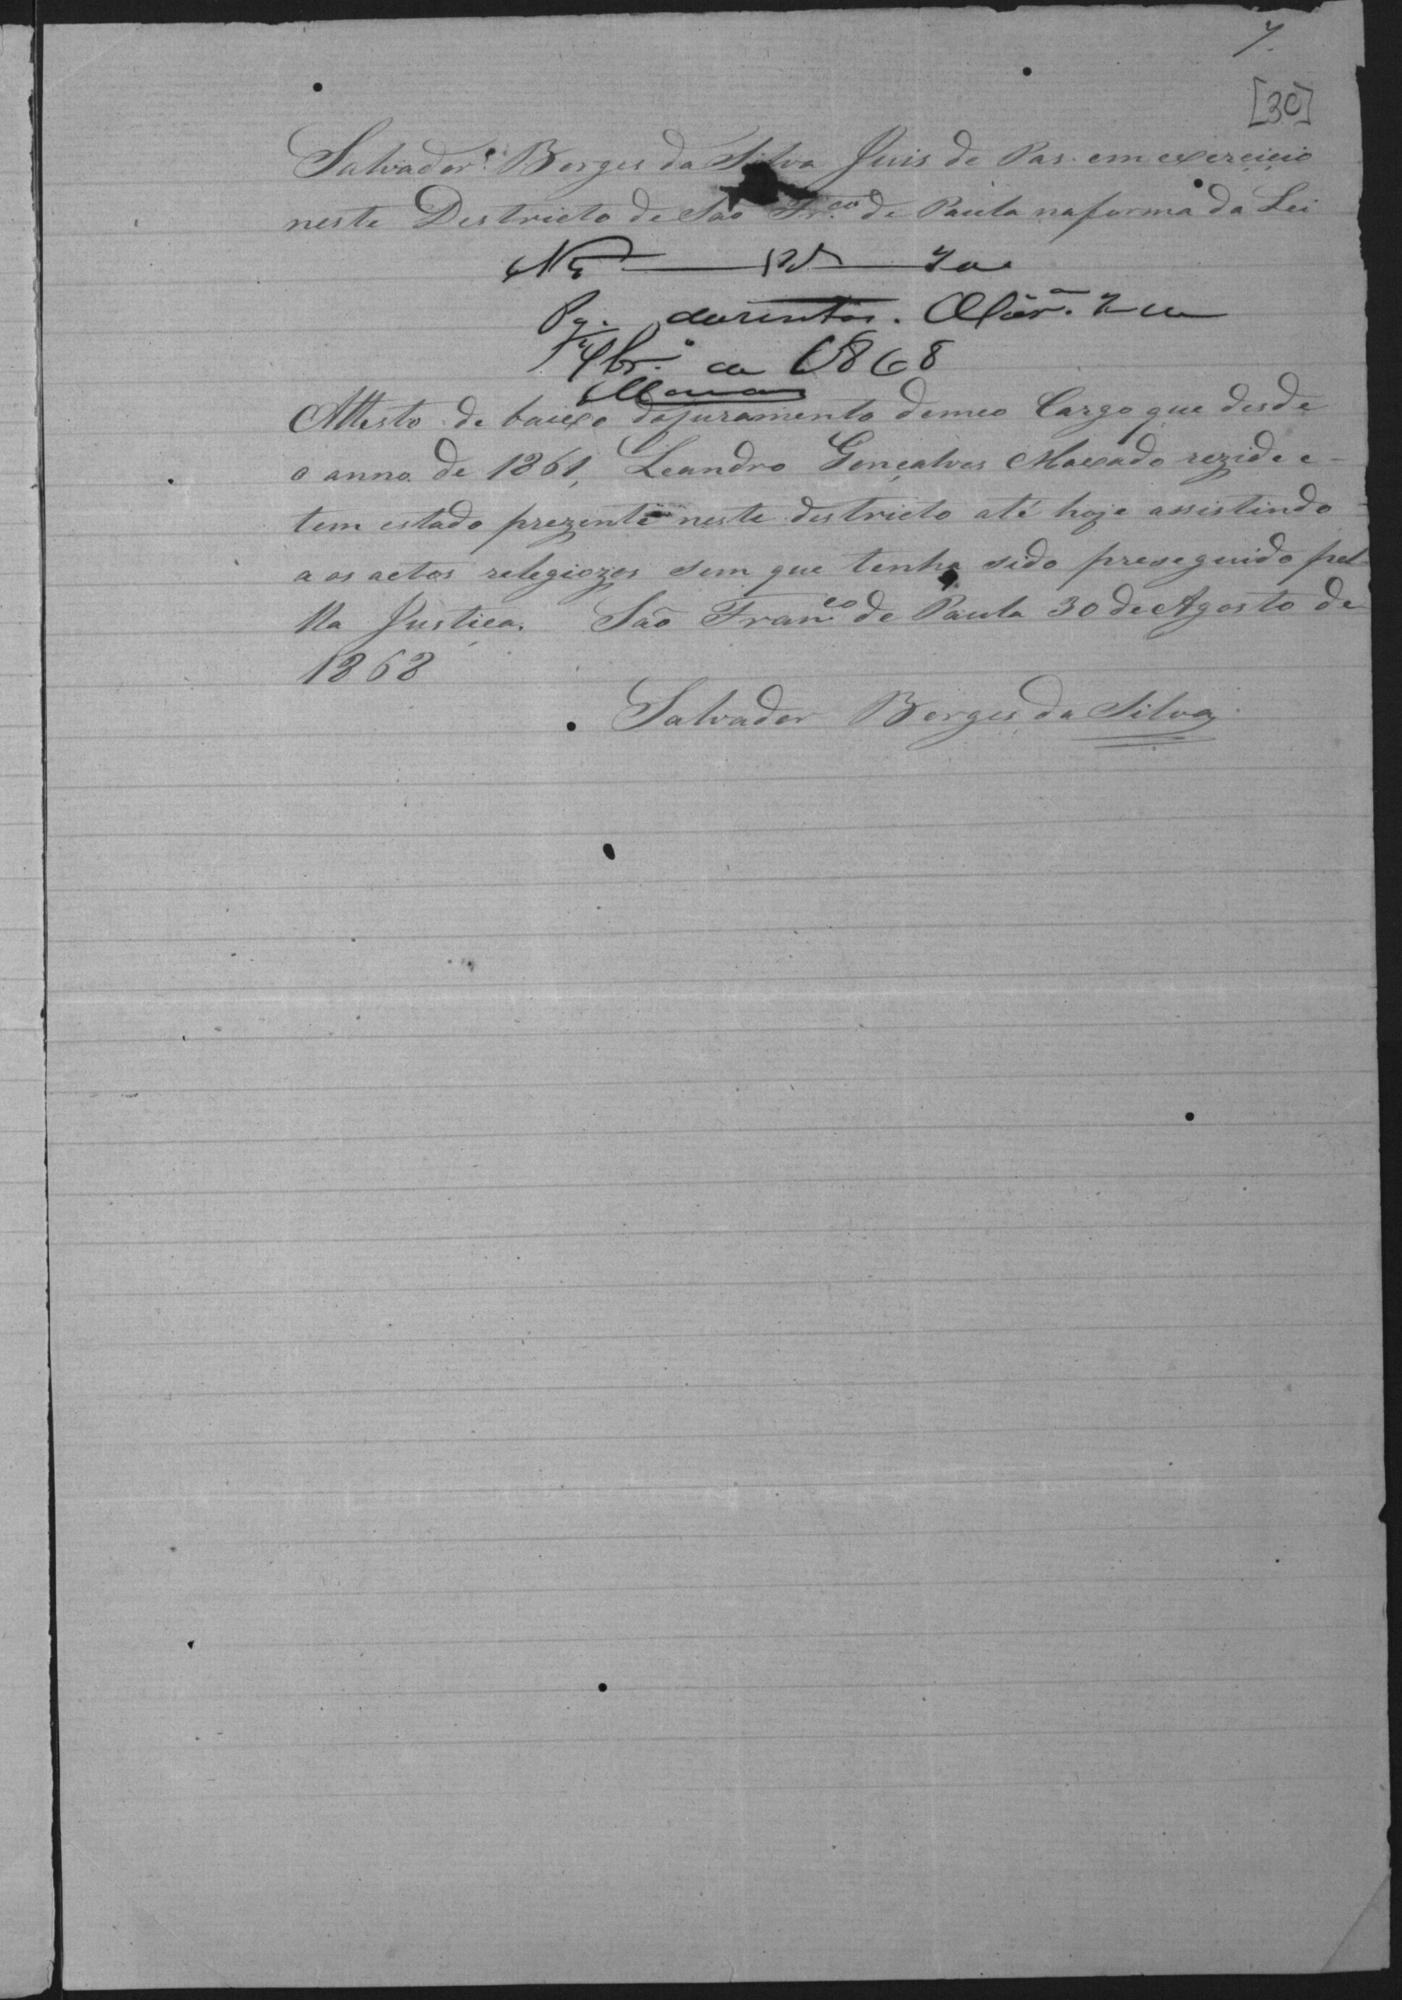 7.
[30]
Salvador Borges da Silva Juis de Pas em exercicio
neste Destricto de São Fr.co de Paula na forma da Lei
Nº
Pg. duzentos.
de 1868
Attesto de baixo do juramento de meo Cargo que desde
o anno de 1861, Leandro Gonçalves Maxado rezide e
tem estado prezente neste destricto até hoje assistindo
a os actos relegiozos sem que tenha sido preseguido pel-
lla Justiça. São Fran.co de Paula 30 de Agosto de
1868
Salvador Borges da Silva